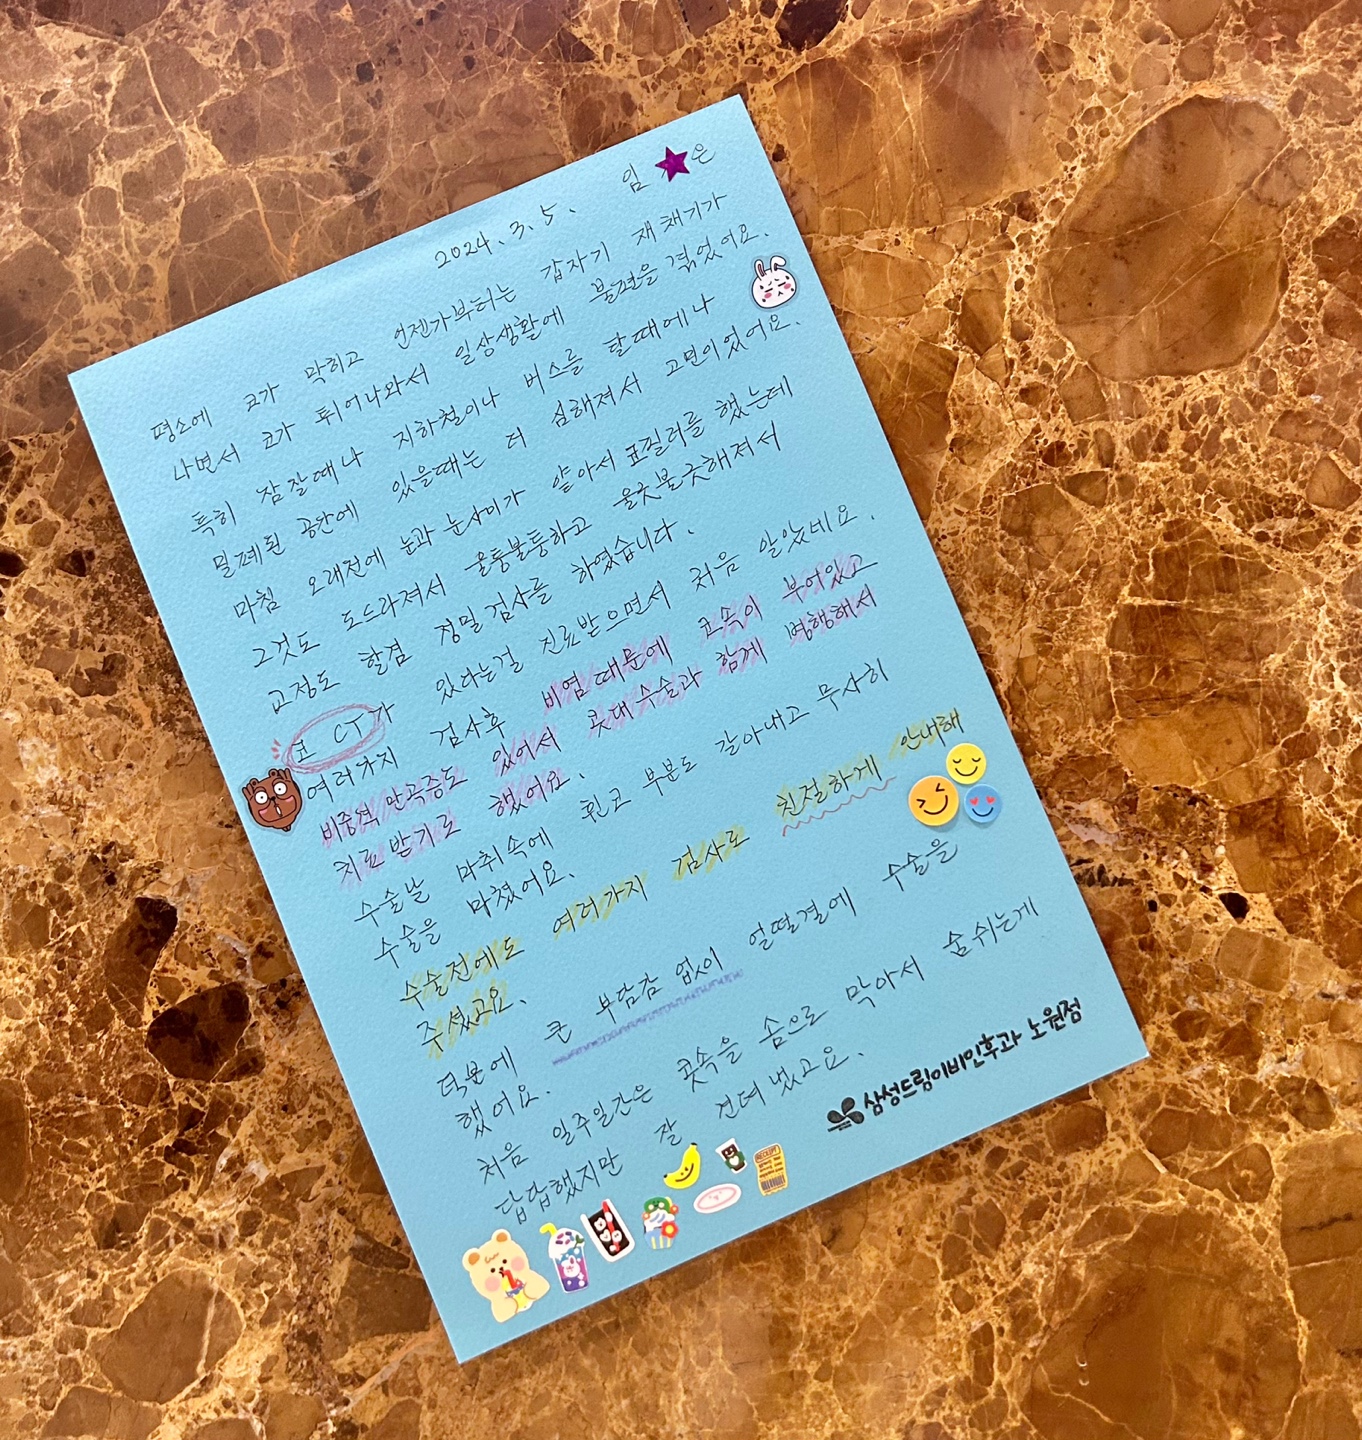 2024. 3. 5. 임 은
평소에 코가 막히고 언젠가부터는 갑자기 재채기가
나면서 코가 튀어나와서 일상생활에 불편을 겪었어요.
특히 잠잘때나 지하철이나 버스를 탈때에나
밀폐된 공간에 있을때는 더 심해져서 고민이 있어요.
마침 오래전에 눈과 눈사이가 얕아서 코필러를 했는데
그것도 도드라져서 울퉁불퉁하고 울긋불긋해져서
교정도 할겸 정밀검사를 하였습니다.
코 CT가 있다는걸 진료받으면서 처음 알았네요.
여러가지 검사후 비염때문에 코속이 부어있고
비중격 만곡증도 있어서 콧대수술과 함께 병행해서
치료받기로 했어요.
수술날 마취속에 휜코 부분도 갈아내고 무사히
수술을 마쳤어요.
수술전에도 여러가지 검사로 친절하게 안내해
주셨고요.
덕분에 큰 부담감 없이 얼떨결에 수술을
했어요.
처음 일주일간은 콧속을 솜으로 막아서 숨쉬는게
답답했지만 잘 견뎌냈고요.
삼성드림이비인후과 노원점
RECEIPT